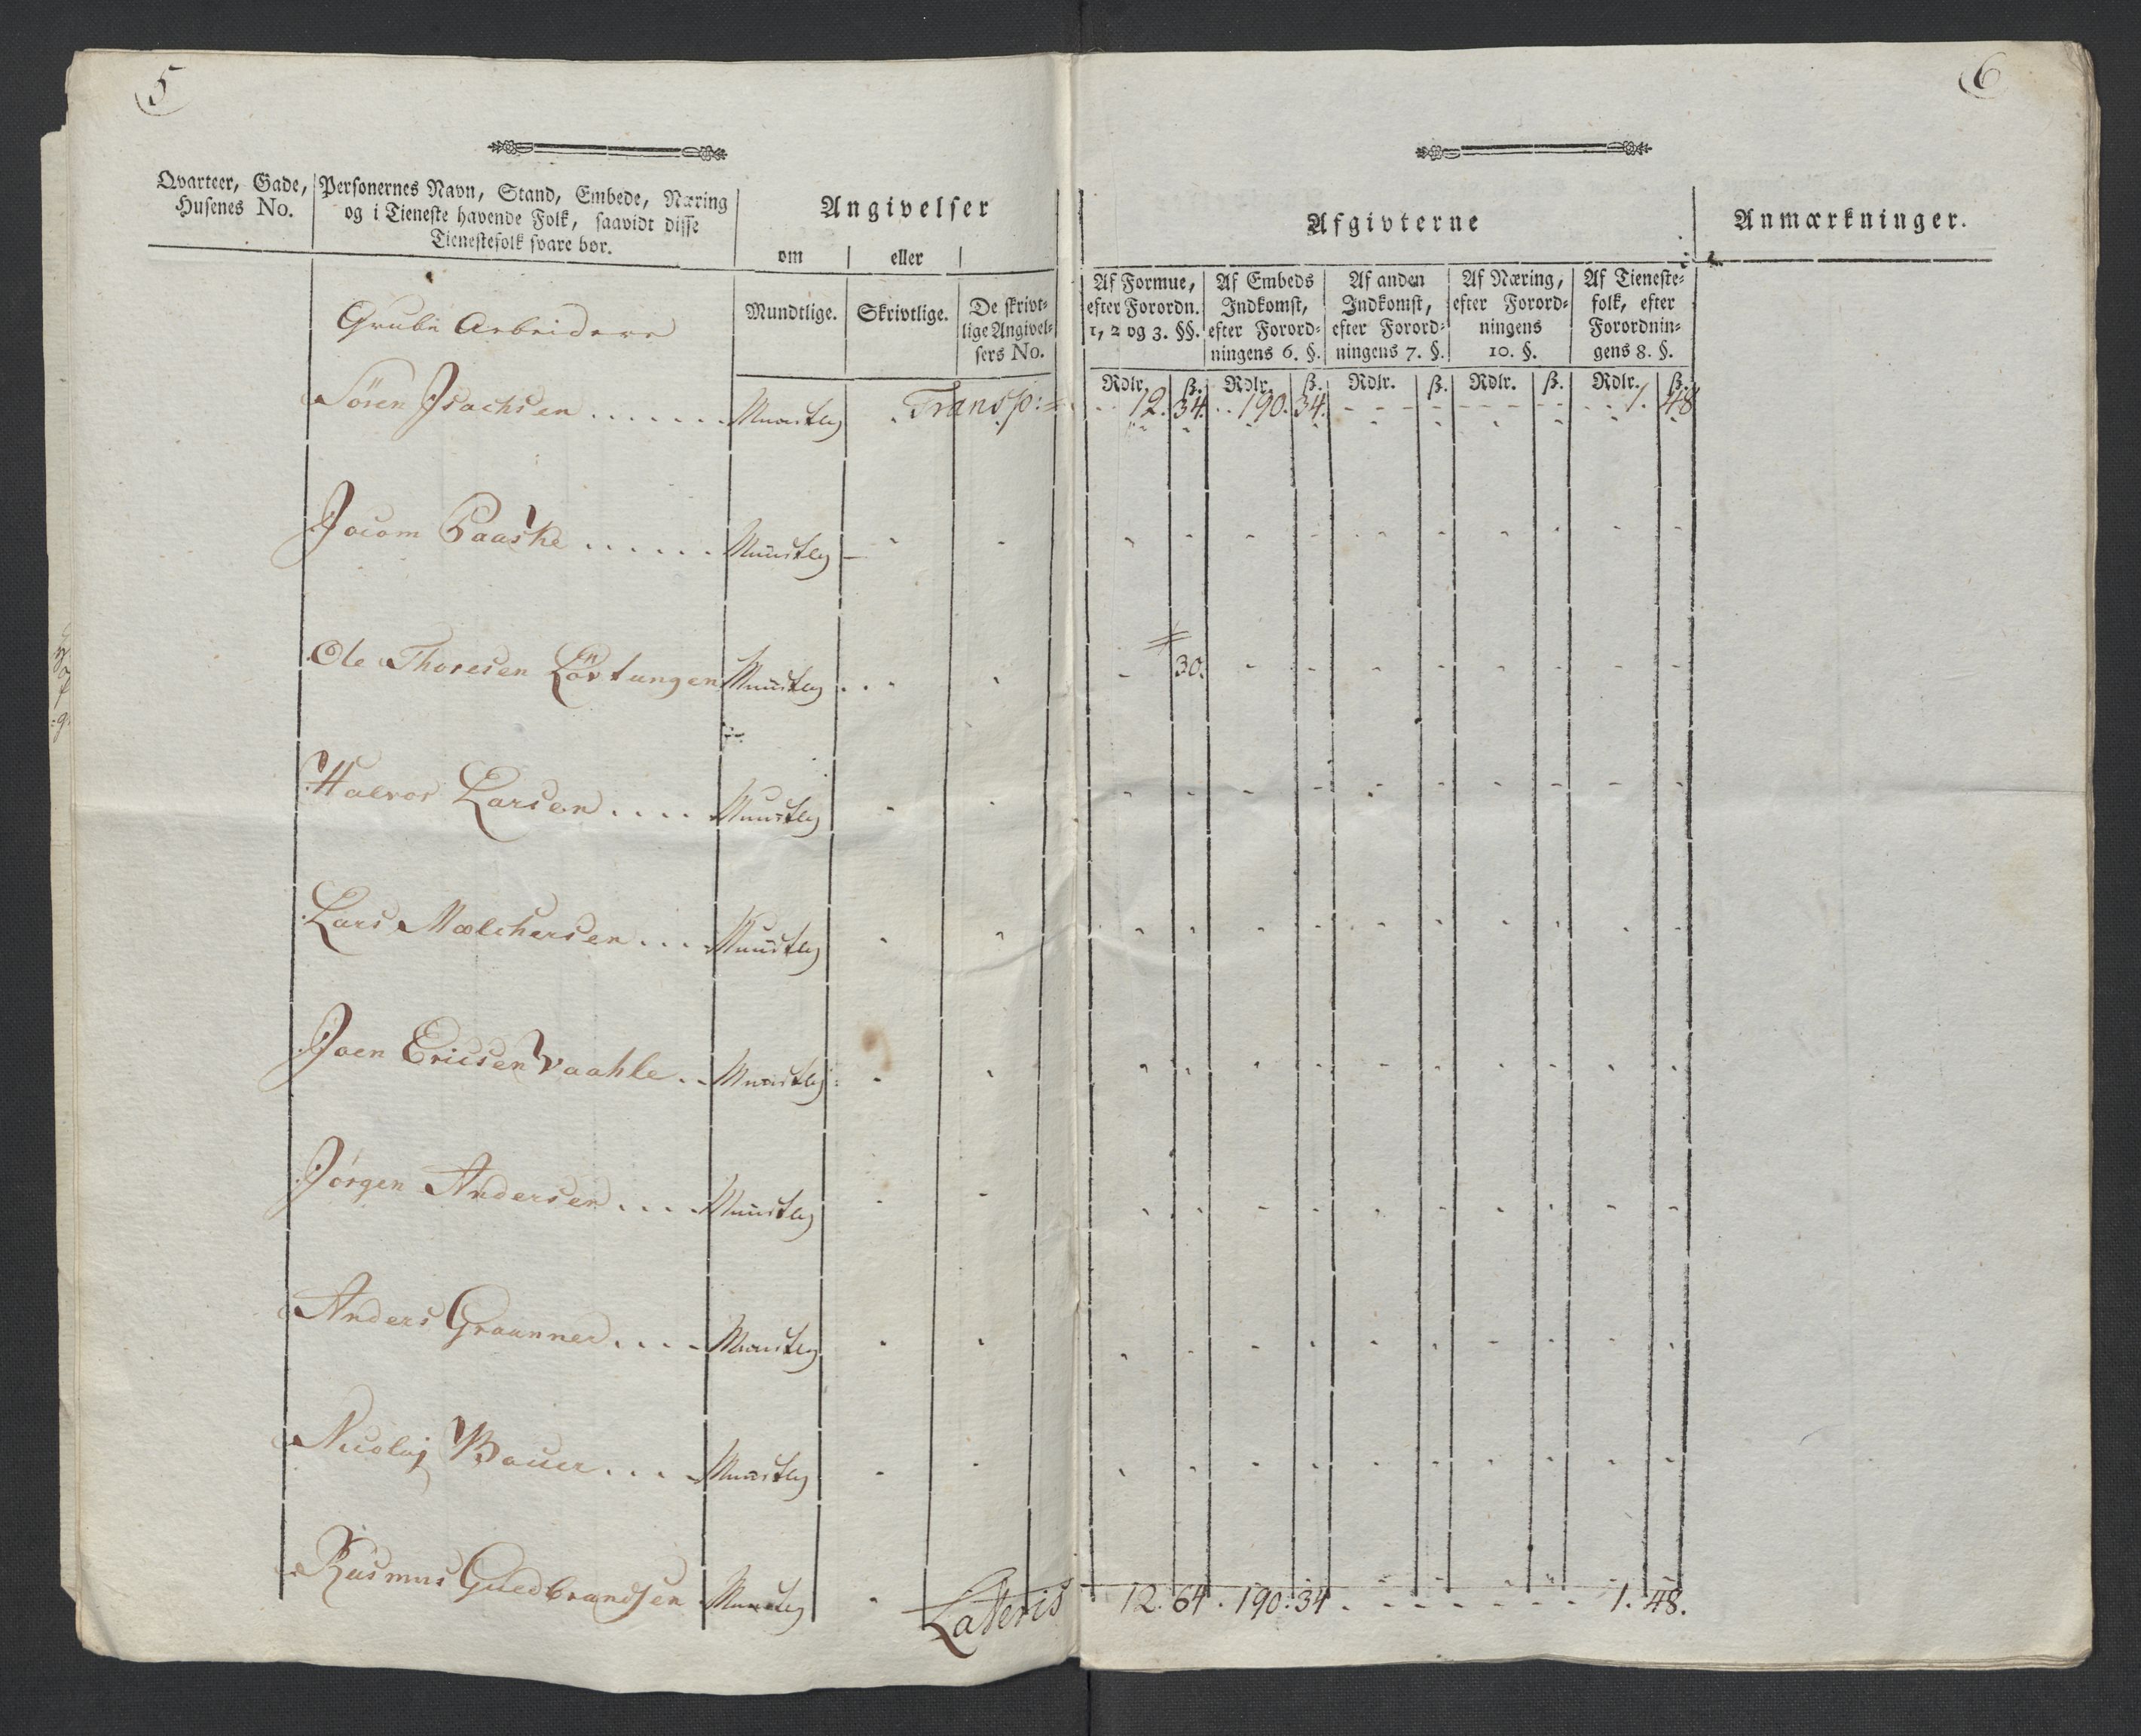 5
Qvarteer, Gade,
Husenes No.
Personernes Navn, Stand, Embede, Næring
og i Tieneste havende Folk, saavidt disse
Tienestefolk svare bør.
Angivelser
om eller
Mundtlige. Skrivtlige. De skrivt-
lige Angivel-
sers No.
Grube Arbeidere
Sören Isachsen . . . . . . Mundtlig Transp:
Jocom Paaske . . . . . . Mundtlig
Ole Thoresen Mundtlig
Halvor Larsen . . . . Mundtlig
Lars Mælchersen . . . Mundtlig
Joen Ericsen Vaahle . . Mundtlig
Jörgen Andersen . . . . Mundtlig
Anders Graunner . . . . Mundtlig
Nicolaj Bauer . . . . Mundtlig
Rasmus Guedbrandsen Mundtlig
Lateris
6
Afgivterne
Anmærkninger.
Af Formue,
efter Forordn.
1, 2 og 3. §§.
Af Embeds
Indkomst,
efter Forord-
ningens 6. §.
Af anden
Indkomst,
efter Forord-
ningens 7. §.
Af Næring,
efter Forord-
ningens
10. §.
Af Tieneste-
folk, efter
Forordnin-
gens 8. §.
Rdlr. ß. Rdlr. ß. Rdlr. ß. Rdlr. ß. Rdlr. ß.
12. 34. 190. 34. 1. 48
30.
12. 64. 190. 34 1. 48.